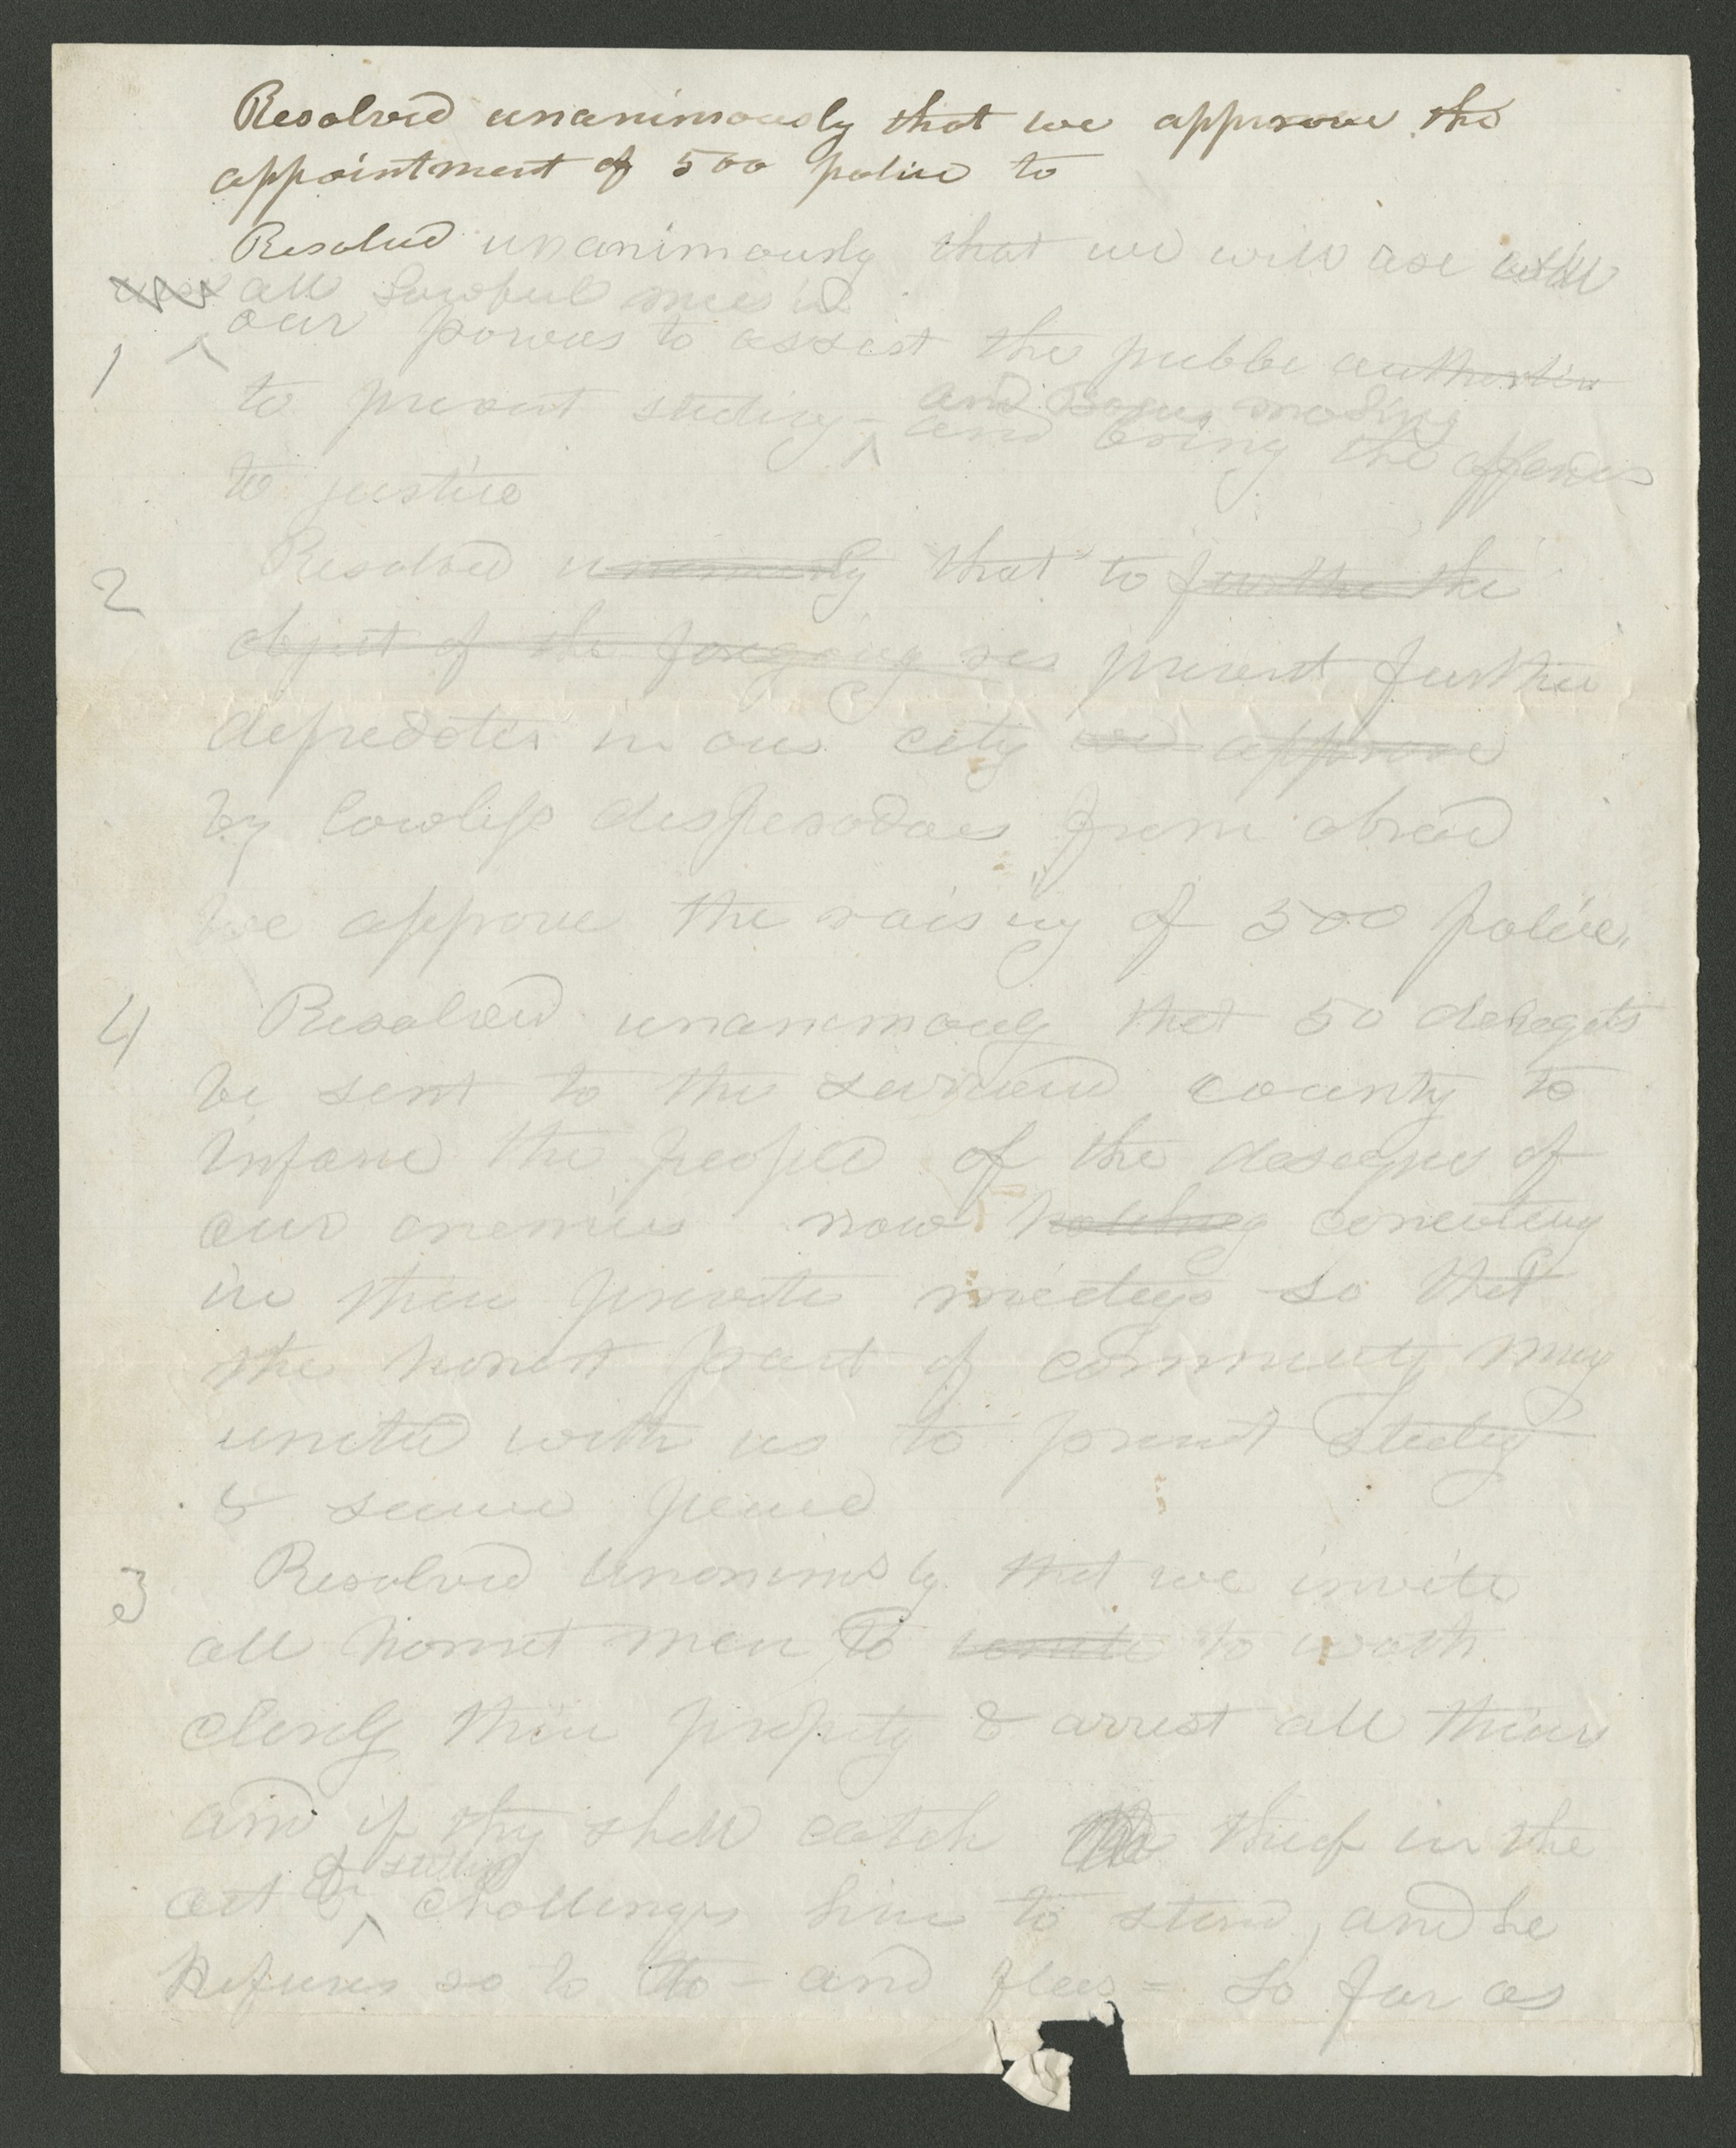 Resolved unanimously that we approve the
appointment of 500 police to
Resolved unanimously that we will use all
all lawful means in
our powers to assist the public authorities
1
to prevent stealing - and Bogus making
and bring the offenders
to justice
2 Resolved unanimously that to further the
object of the foregoing res prevent further
depredation in our city we approve
by lawless desperadoes from abroad
we approve the raising of 500 police.
4 Resolved unanimously that 50 delegats
be sent to the surround county to
inform the people of the designs of
our enemies now hatching concocting
in their private meetings so that
the honest part of community may
united with us to prevent stealing
& secure peace
3 Resolved unanimously that we invite
all honest men to to watch
closely their property & arrest all thieves
and if they shall catch thief in the
act of stealing challenge him to stand, and he
Refuses so to do - and flees = so far as